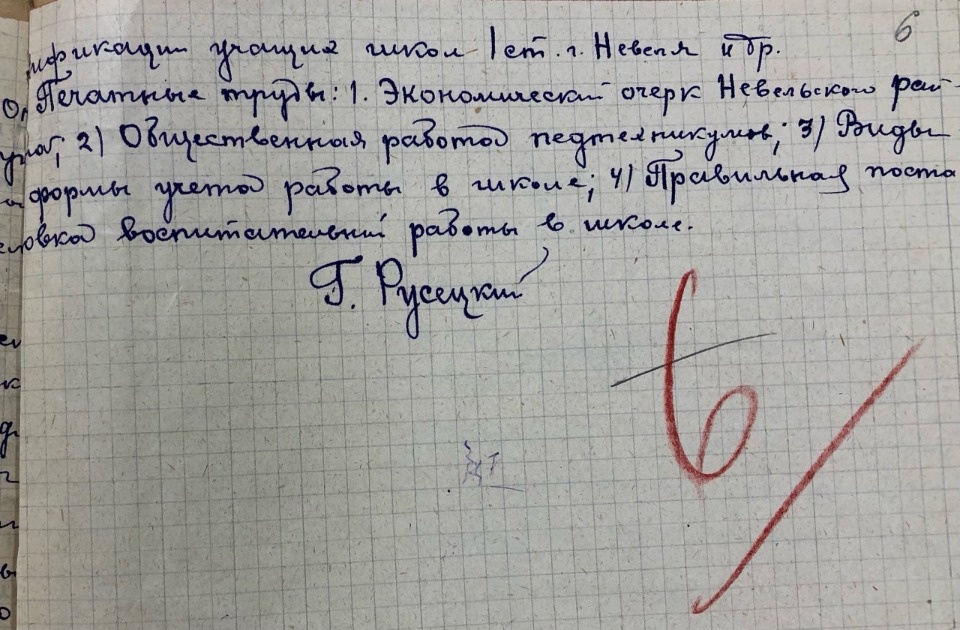 6
ификации учащих школ I ст. г. Невеля и др.
Печатные труды: 1. Экономический очерк Невельского рай-
2) Общественная работа педтехникумов; 3) Виды
формы учета работы в школе; 4) Правильная поста
новка воспитательной работы в школе.
Г. Русецкий
6